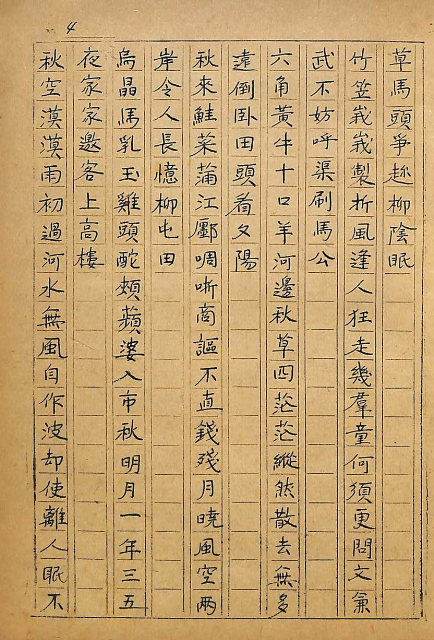 4
草馬頭爭趂柳陰眠
竹笠峩峩製折風逢人狂走幾羣童何須更問文兼
武不妨呼渠刷馬公
六角黃牛十口羊河邊秋草四茫茫縱然散去無多
遠倒卧田頭看夕陽
秋來鮭菜蒲江鄽啁哳商謳不直錢殘月曉風空兩
岸令人長憶柳屯田
烏晶馬乳玉雞頭酡頰蘋婆入市秋明月一年三五
夜家家邀客上高樓
秋空漠漠雨初過河水無風自作波却使離人眠不